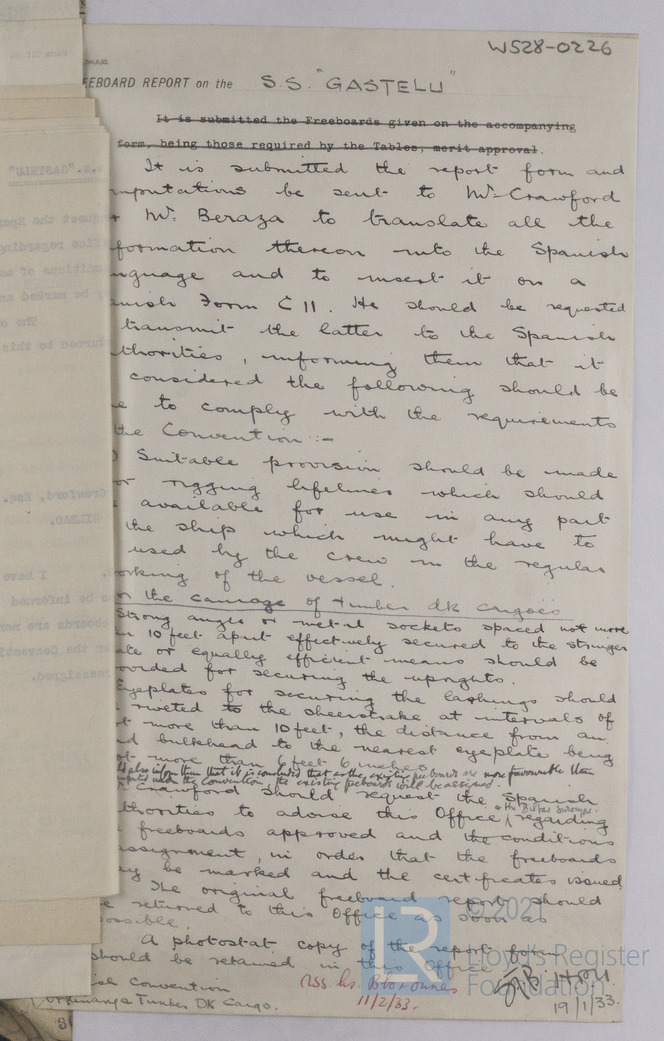 W528-0226
EEBOARD REPORT on the S.S. "GASTELU"
It is submitted the Freeboards given on the accompanying
form, being those required by the Tables, merit approval.
It is submitted the report form and
mputations be sent to Mr Crawford
Mr. Beraza to translate all the
formation thereon into the Spanish
nguage and to insert it on a
anish Form C 11. He should be requested
transmit the latter to the Spanish
thorities, informing them that it
considered the following should be
e to comply with the requirements
the Convention :-
) Suitable provision should be made
or rigging lifelines which should
available for use in any part
the ship which might have to
used by the crew in the regular
orking of the vessel.
the carriage of timber dk cargoes
Strong angle or metal sockets spaced not more
10 feet apart effectively secured to the stringer
ate or equally efficient means should be
ovided for securing the uprights.
Eyeplates for securing the lashings should
riveted to the sheerstrake at intervals of
t more than 10 feet, the distance from an
d bulkhead to the nearest eyeplate being
ot more than 6 feet 6 inches.
also inform them that it is considered that as the existing freeboards are more favourable than
under the Convention the existing freeboards will be assigned.
Crawford should request the Spanish
thorities to advise this Office & the Bilbao Surveyors regarding
freeboards approved and the conditions
assignment, in order that the freeboards
ay be marked and the certificates issued.
The original freeboard report should
e returned to this Office as soon as
possible.
A photostat copy of the report form
should be retained in this office
sh Convention
Timber DK Cargo.
11/2/33.
19/1/33.
© 2021
Lloyd's Register
Foundation
s.s."GASTELU"
Crawford, Esq.
BILBAO.
I have
be informed